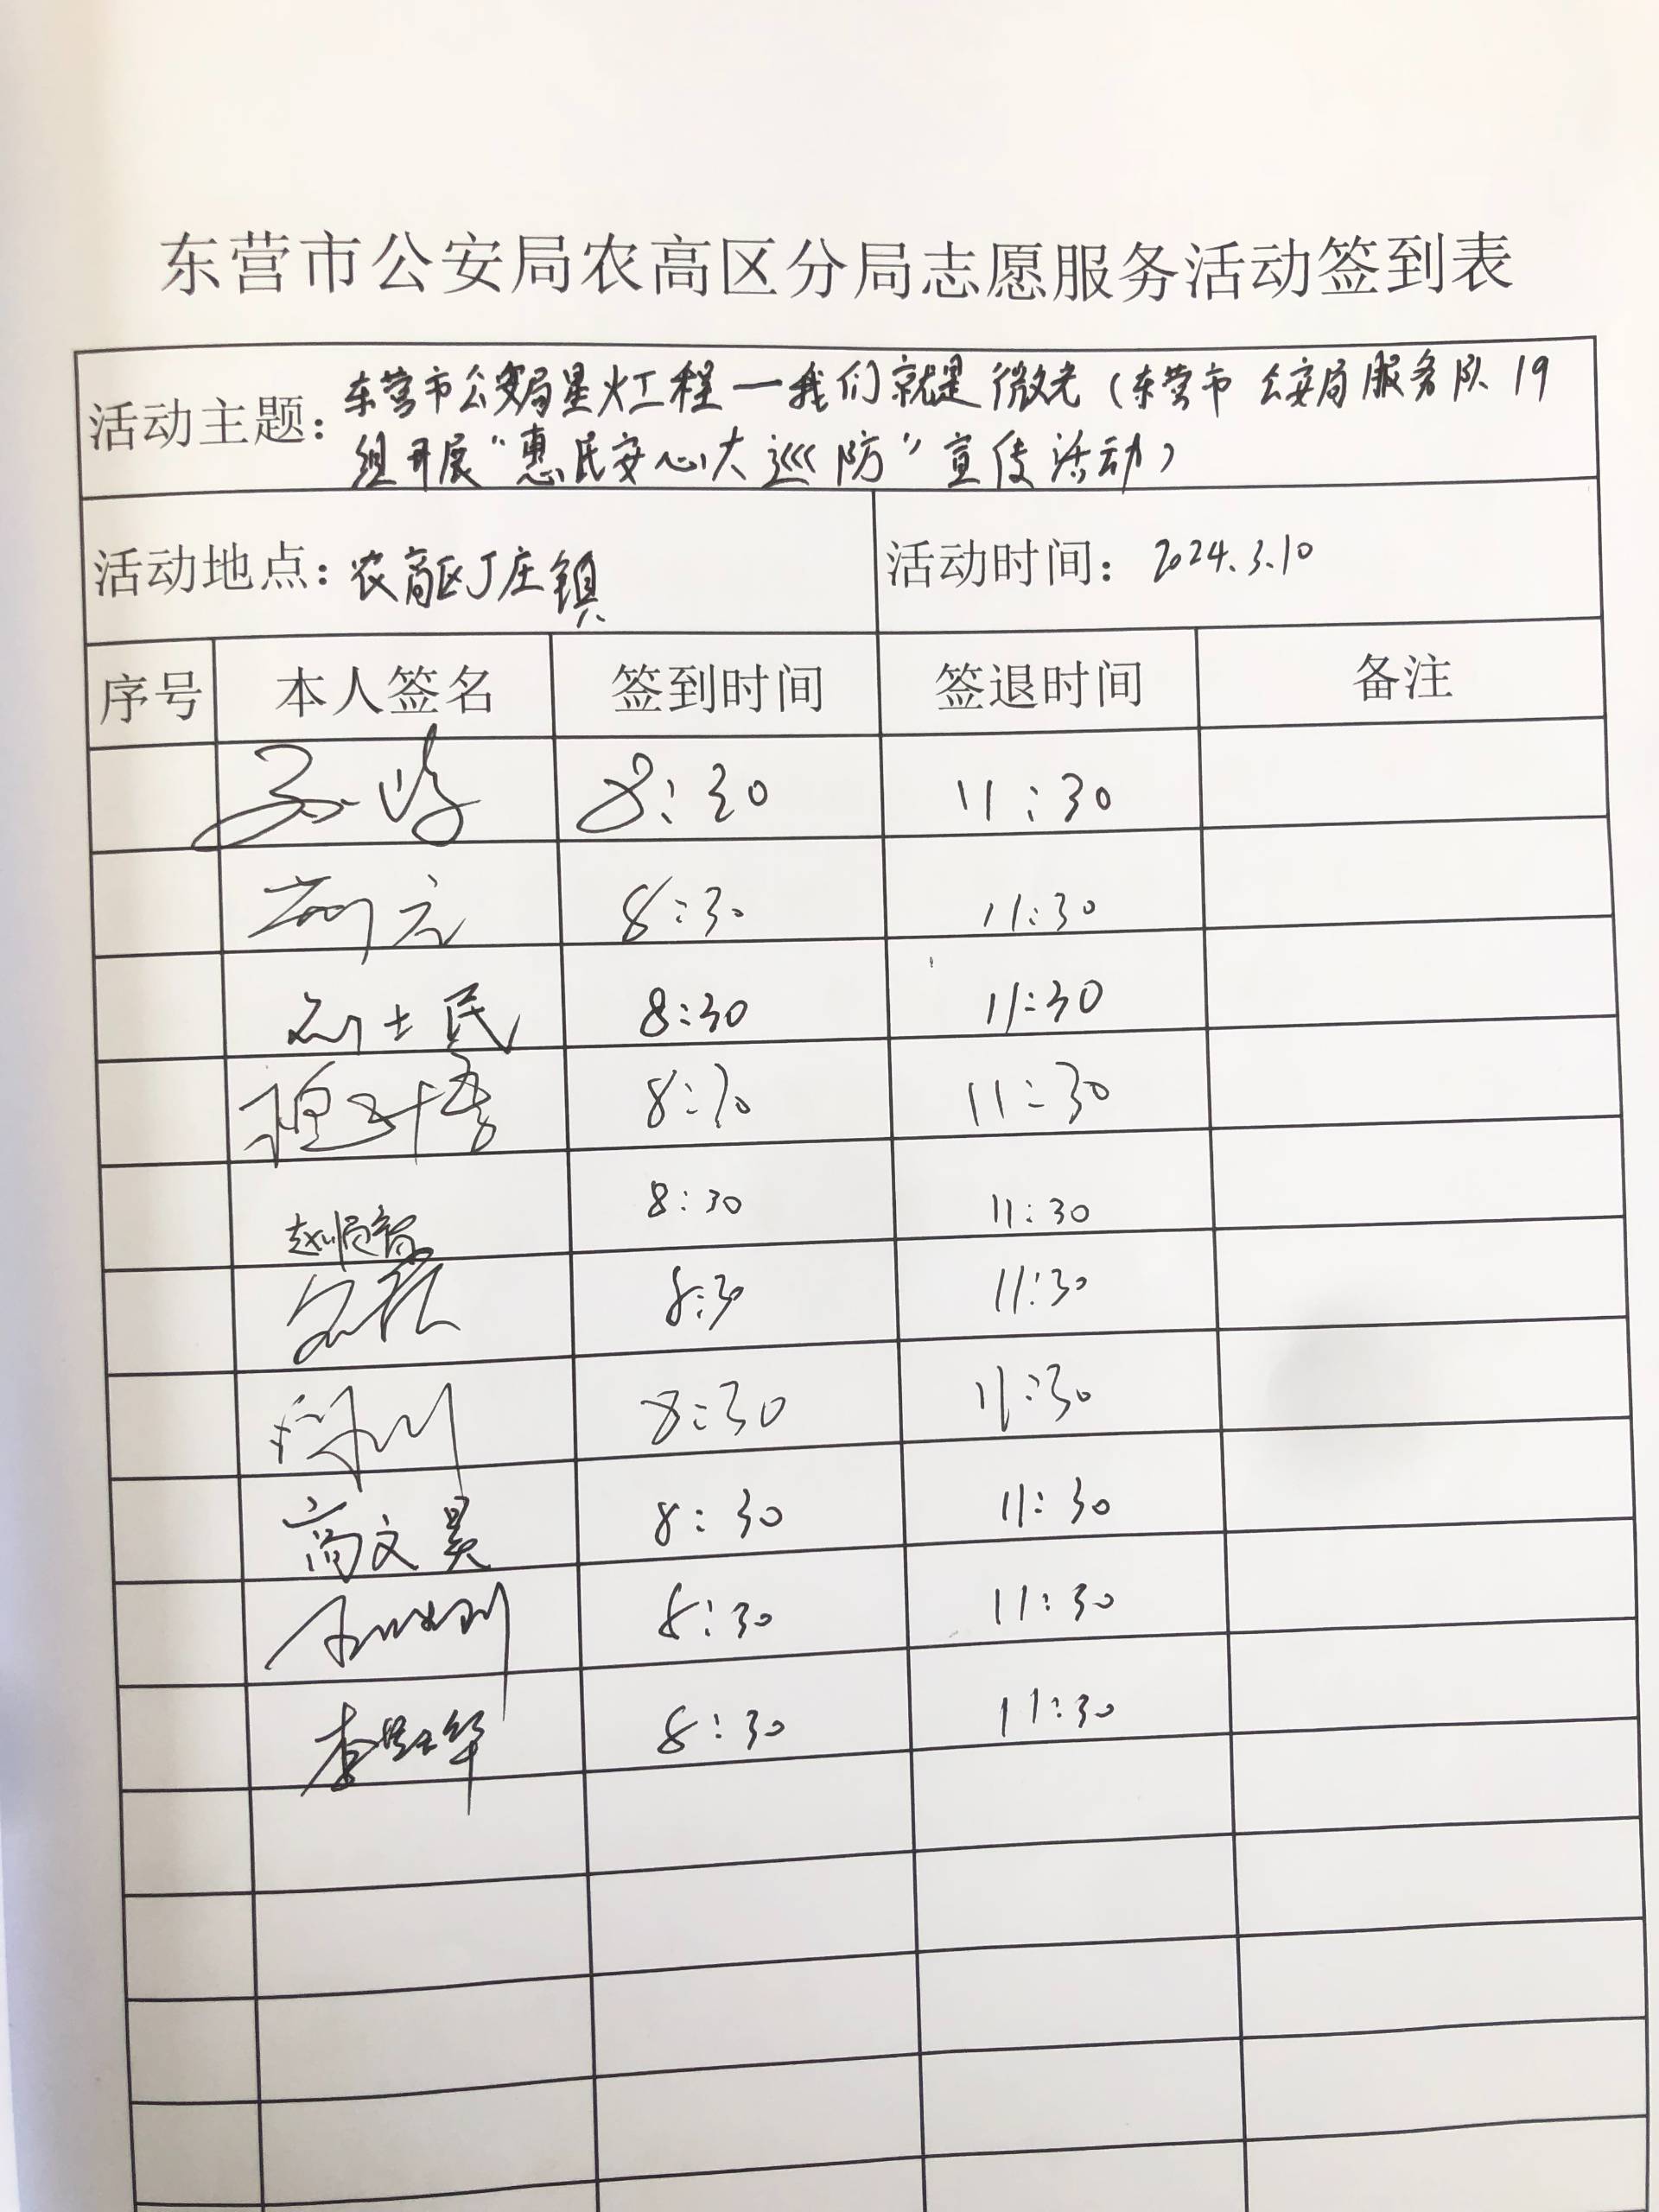 东营市公安局农高区分局志愿服务活动签到表
活动主题：东营市公安局星火工程一我们就是微光（东营市公安局服务队19
组开展“惠民安心大巡防”宣传活动）
活动地点：农高区丁庄镇 活动时间：2024.3.10
序号 本人签名 签到时间 签退时间 备注
8:30 11:30
8:30 11:30
刘士民 8:30 11:30
8:30 11:30
赵顺智 8:30 11:30
8:30 11:30
8:30 11:30
高文昊 8:30 11:30
8:30 11:30
李 华 8:30 11:30